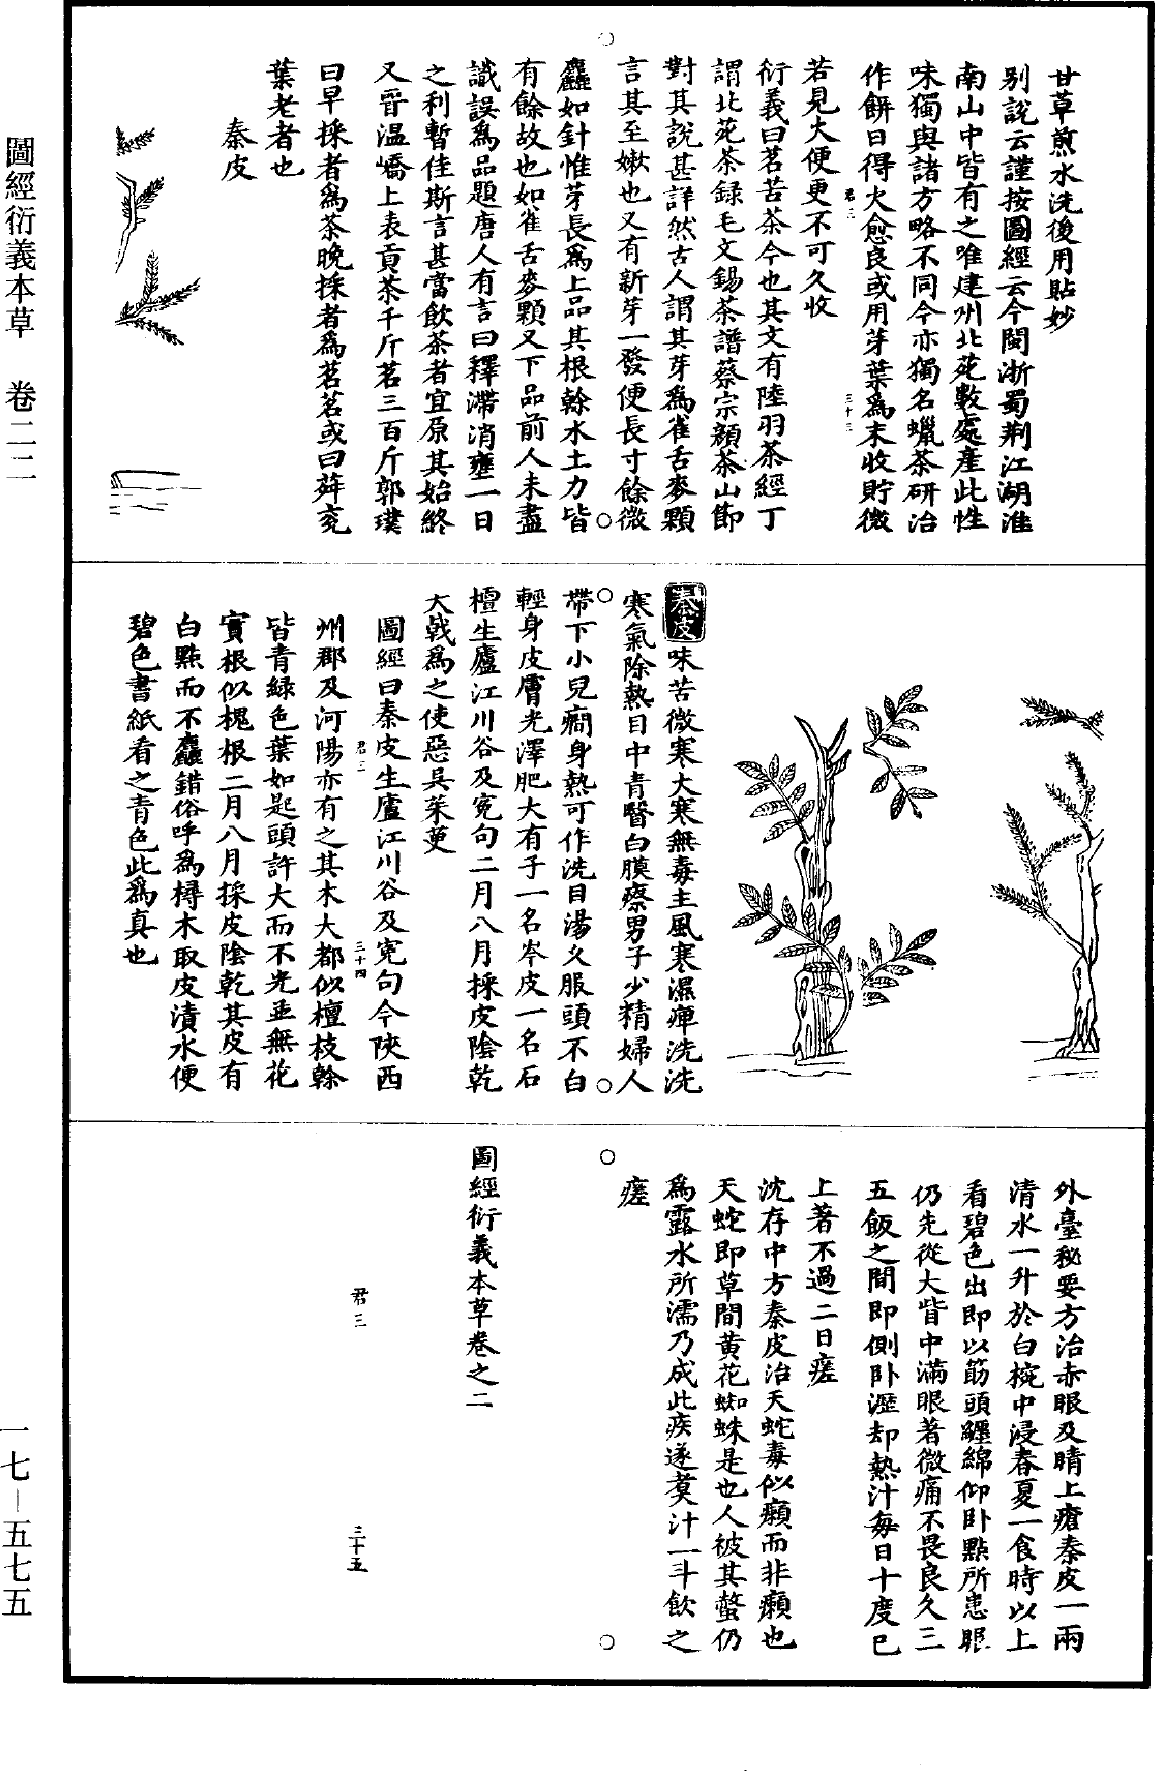 甘草煎水洗後用貼妙
别說云謹按圖經云今閩浙蜀荆江湖淮
南山中皆有之唯建州北苑數處産此性
味獨與諸方略不同今亦獨名蠟茶研治
作餅日得火愈良或用芽葉爲末收貯微
君三
三十三
若見火便更不可久收
衍義曰茗苦茶今也其文有陸羽茶經丁
謂北苑茶録毛文錫茶譜蔡宗顔茶山節
對其說甚詳然古人謂其芽爲雀舌麥顆
言其至嫩也又有新芽一發便長寸餘微
麤如針惟芽長爲上品其根榦水土力皆
有餘故也如雀舌麥顆又下品前人未盡
識誤爲品題唐人有言曰釋滯消壅一日
之利暫佳斯言甚當飲茶者宜原其始終
又晉温嶠上表貢茶千斤茗三百斤郭璞
曰早採者爲茶晚採者爲茗茗或曰荈
葉老者也
秦皮
秦皮味苦微寒大寒無毒主風寒濕痺洗洗
寒氣除熱目中青瞖白膜療男子少精婦人
帶下小兒癎身熱可作洗目湯久服頭不白
輕身皮膚光澤肥大有子一名岑皮一名石
檀生廬江川谷及宛句二月八月採皮陰乾
大戟爲之使惡吴茱萸
圖經曰秦皮生廬江川谷及宛句今陝西
君三
三十四
州郡及河陽亦有之其木大都似檀枝榦
皆青緑色葉如匙頭許大而不光並無花
實根似槐根二月八月採皮陰乾其皮有
白點而不麤錯俗呼爲樳木取皮漬水便
碧色書紙看之青色此爲真也
外臺秘要方治赤眼及睛上瘡秦皮一兩
清水一升於白椀中浸春夏一食時以上
看碧色出即以筯頭纏綿仰卧點所患眼
仍先從大眥中滿眼著微痛不畏良久三
五飯之間即側卧瀝却熱汁每日十度已
上著不過二日瘥
沈存中方秦皮治天蛇毒似癩而非癩也
天蛇即草間黄花蜘蛛是也人被其螫仍
爲露水所濡乃成此疾遂煑汁一斗飲之
瘥
圖經衍義本草卷之二
君三
三十五
圖經衍義本草　卷二二
一七—五七五